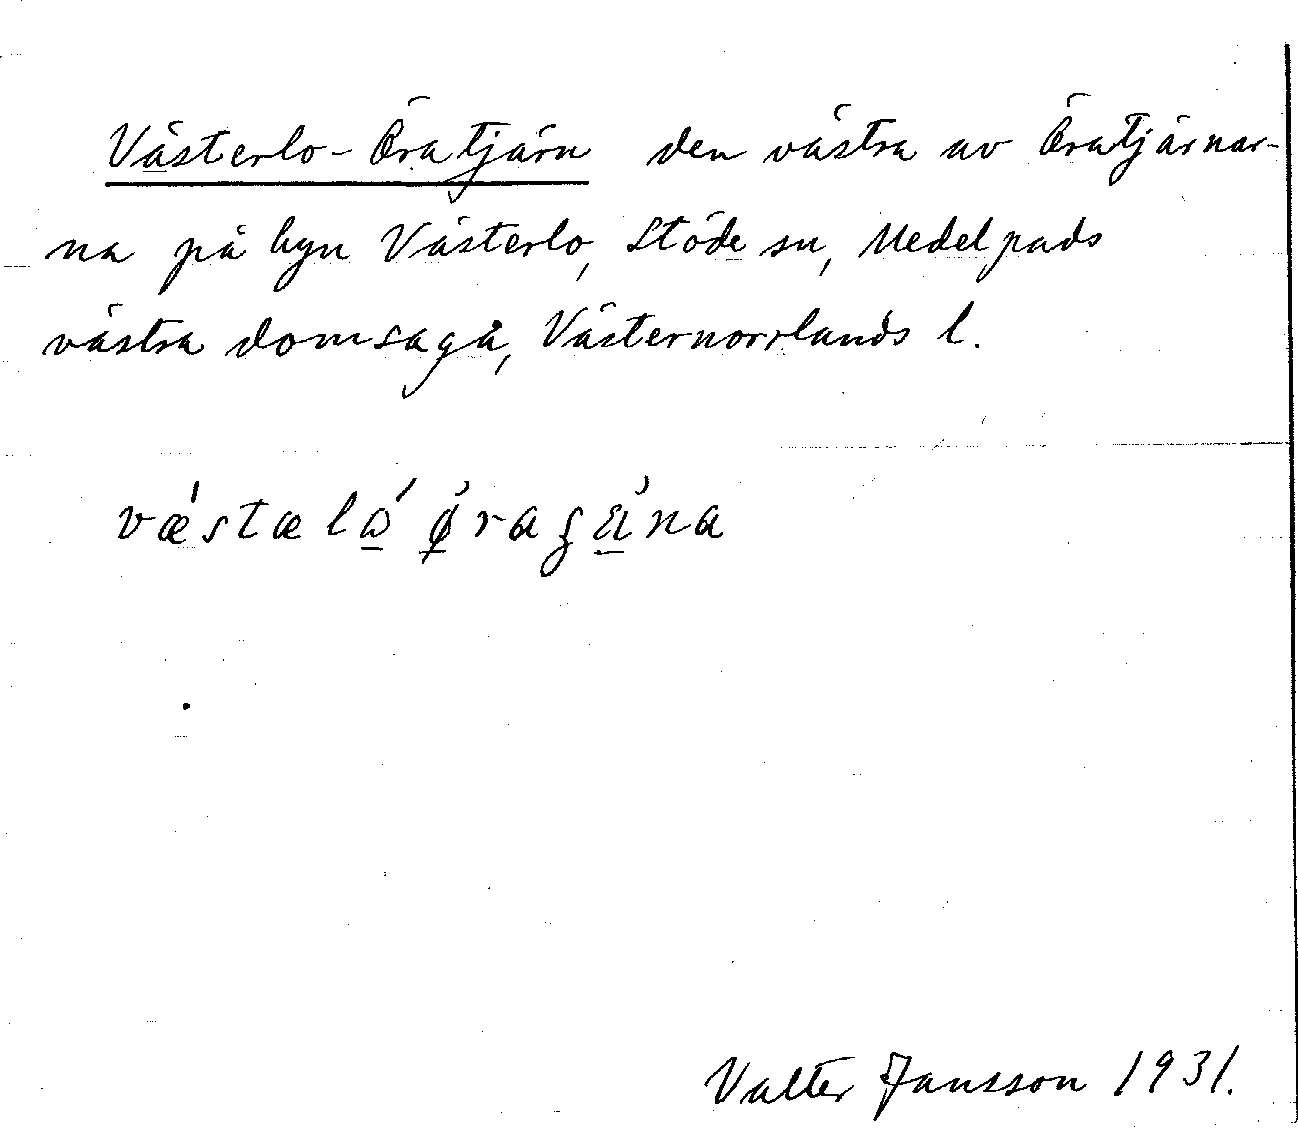 Västerlo-Öratjärn den västra av Öratjärnar-
na på byn Västerlo, Stöde sn, Medelpads
västra domsaga, Västernorrlands l.
vǽstælɷ́ ø̀raʂæ̀na
Valter Jansson 1931.